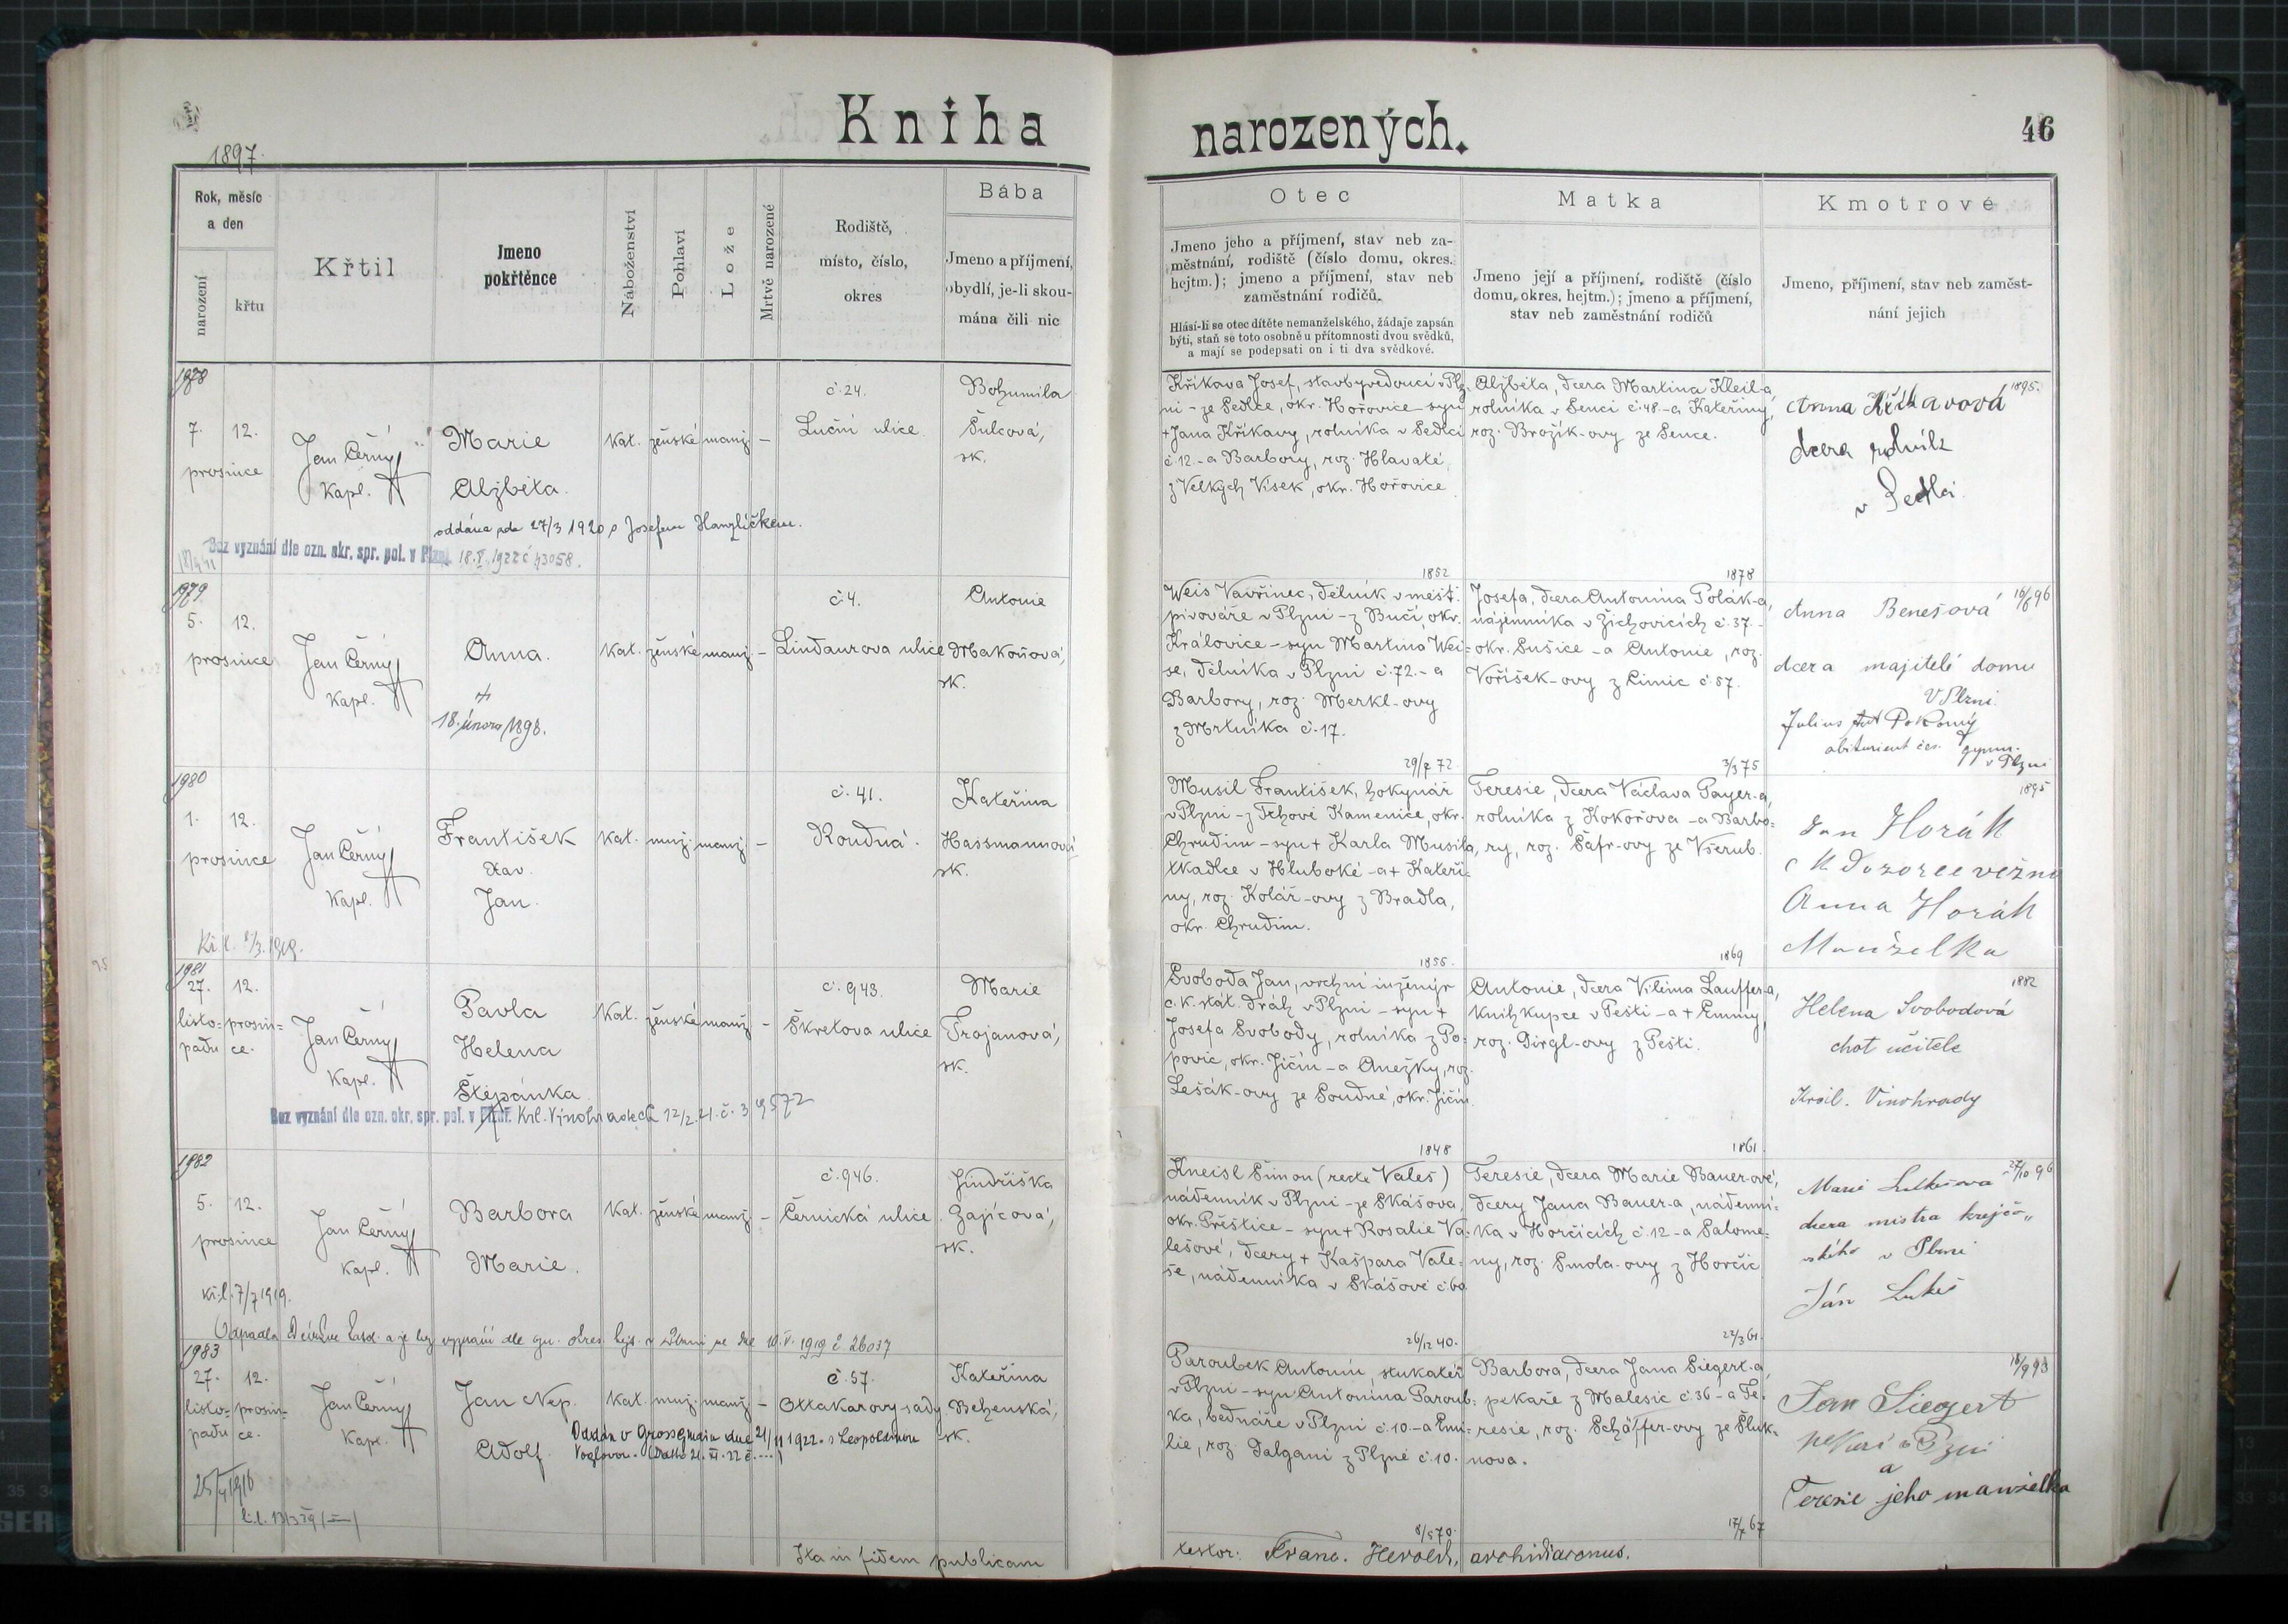 Kniha narozených.
46
1897.
Rok, měsíc
a den
narození
křtu
Křtil
Jmeno
pokřtěnce
Náboženství
Pohlaví
Lože
Mrtvě narozené
Rodiště,
místo, číslo,
okres
Bába
Jmeno a příjmení,
obydlí, je-li skou-
mána čili nic
Otec
Jmeno jeho a příjmení, stav neb za-
městnání, rodiště (číslo domu, okres.
hejtm.); jmeno a příjmení, stav neb
zaměstnání rodičů.
Hlásí-li se otec dítěte nemanželského, žádaje zapsán
býti, staň se toto osobně u přítomnosti dvou svědků,
a mají se podepsati on i ti dva svědkové.
Matka
Jmeno její a příjmení, rodiště (číslo
domu, okres. hejtm.); jmeno a příjmení,
stav neb zaměstnání rodičů
Kmotrové
Jmeno, příjmení, stav neb zaměst-
nání jejich
1978
7. 12.
prosince
Jan Černý
kapl.
Marie
Alžběta.
kat. ženské manž. –
č. 24.
Luční ulice
Bohumila
Šulcová,
zk.
oddána dne 27/3 1920 s Josefem Hanzlíčkem.
Bez vyznání dle ozn. okr. spr. pol. v Plzni 18.V.1922 č 43058.
Křikava Josef, stavbyvedoucí v Plz-
ni – ze Sedlce, okr. Hořovice – syn
+ Jana Křikavy, rolníka v Sedlci
č 12 – a Barbory, roz. Hlavaté,
z Velkých Vísek, okr. Hořovice
1852
Alžběta, dcera Martina Kleil-a,
rolníka v Senci č. 48. – a Kateřiny,
roz. Brožík-ovy ze Sence.
1878
1895.
Anna Křikavová
dcera rolníka
v Sedlci
1979
5. 12.
prosince
Jan Černý
kapl.
Anna.
+
18. února 1898.
kat. ženské manž. –
č. 4.
Lindaurova ulice
Antonie
Makoňová,
zk.
Weis Vavřinec, dělník v měšť.
pivováře v Plzni – z Bučí, okr.
Královice – syn Martina Wei-
se, dělníka v Plzni č. 72. – a
Barbory, roz. Merkl-ovy
z Mrtníka č. 17.
29/7 72.
Josefa, dcera Antonína Polák-a,
nájemníka v Žichovicích č. 37. –
okr. Sušice – a Antonie, roz.
Voříšek-ovy z Limic č. 57.
3/3 75
16/8 96
Anna Benešová
dcera majitele domu
v Plzni.
Julius Pokorný
abiturient čes. gymn.
v Plzni
1980
1. 12.
prosince
Jan Černý
kapl.
František
Xav.
Jan.
kat. muž. manž. –
č. 41.
Roudná.
Kateřina
Hassmannová
zk.
Kř. l. 8/3. 1919.
Musil František, hokynář
v Plzni – z Trhové Kamenice, okr.
Chrudim – syn + Karla Musila,
tkadlce v Hluboké – a + Kateři-
ny, roz. Kolář-ovy z Bradla,
okr. Chrudim.
1855.
Teresie, dcera Václava Payer-a,
rolníka z Kokořova – a Barbo-
ry, roz. Šafr-ovy ze Všerub.
1869
1895
Jan Horák
c k dozorce vězňů
Anna Horák
Manželka
1981
27. 12.
listo- prosin-
padu ce.
Jan Černý
kapl.
Pavla
Helena
Štěpánka
kat. ženské manž. –
č. 943.
Škretova ulice
Marie
Trojanová,
zk.
Bez vyznání dle ozn. okr. spr. pol. v Král. Vinohradech 12/2. 21. č. 39572
Svoboda Jan, vrchní inženýr
c. k. stát. drah v Plzni – syn +
Josefa Svobody, rolníka z Po-
povic, okr. Jičín – a Anežky, roz.
Lešák-ovy ze Soudné, okr. Jičín.
1848
Antonie, dcera Viléma Lauffer-a,
knihkupce v Pešti – a + Emmy,
roz. Girgl-ovy z Pešti.
1861.
1882
Helena Svobodová
choť učitele
Král. Vinohrady
1982
5. 12.
prosince
Jan Černý
kapl.
Barbora
Marie.
kat. ženské manž. –
č. 946.
Černická ulice
Jindřiška
Zajícová,
zk.
kř. l. 7/7 1919.
Odpadla od církve kat. a je bez vyznání dle ozn. okres. hejt. v Plzni ze dne 10. V. 1919 č 26037
Kneisl Šimon (recte Valeš)
nádenník v Plzni – ze Skášova,
okr. Přeštice – syn + Rosalie Va-
lešové, dcery + Kašpara Vale-
še, nádenníka v Skášově č. 60
26/12 40.
Teresie, dcera Marie Bauer-ové,
dcery Jana Bauer-a, nádenní-
ka v Horčicích č. 12 – a Salome-
ny, roz. Smola-ovy z Horčic
22/3 61.
27/10 96
Marie Lukešova
dcera mistra krejčo„
vského v Plzni
Ján Lukeš
1983
27. 12.
listo- prosin-
padu ce.
Jan Černý
kapl.
Jan Nep.
Adolf
kat. muž. manž. –
č. 57.
Ottakarovy sady
Kateřina
Behenská,
zk.
Oddán v Grossgmain dne 21/11 1922 s Leopoldinou
Voglovou.
25/5 1916
Paroubek Antonín, štukatér
v Plzni – syn Antonína Paroub-
ka, bednáře v Plzni č. 10. – a Emi-
lie, roz. Dalgani z Plzně č. 10.
8/5 70.
Barbora, dcera Jana Siegert-a,
pekaře z Malesic č. 36 – a Te-
resie, roz. Schäffer-ovy ze Šluk-
nova.
17/7 67
18/9 93
Jan Siegert
pekař v Plzni
a
Teresie jeho manželka
Ita in fidem publicam testor: Franc. Herold, archidiaconus.